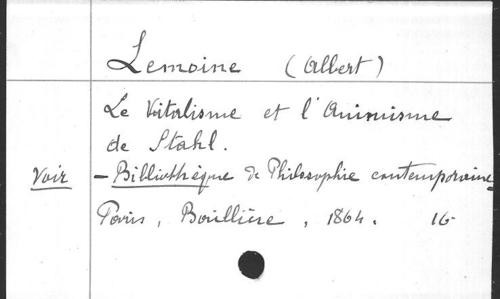 Lemoine (Albert)
Le Vitalisme et l'Animisme
de Stahl.
Voir - Bibliothèque de Philosophie contemporaine
Paris, Baillière, 1864. 16-